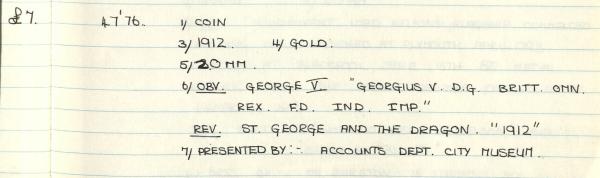 £7. 47'76. 1/ COIN
3/ 1912. 4/ GOLD.
5/ 20 MM.
6/ OBV. GEORGE V. "GEORGIUS V. D.G. BRITT. OMN.
REX. F.D. IND. IMP."
REV. ST. GEORGE AND THE DRAGON. "1912"
7/ PRESENTED BY:-. ACCOUNTS DEPT. CITY MUSEUM.